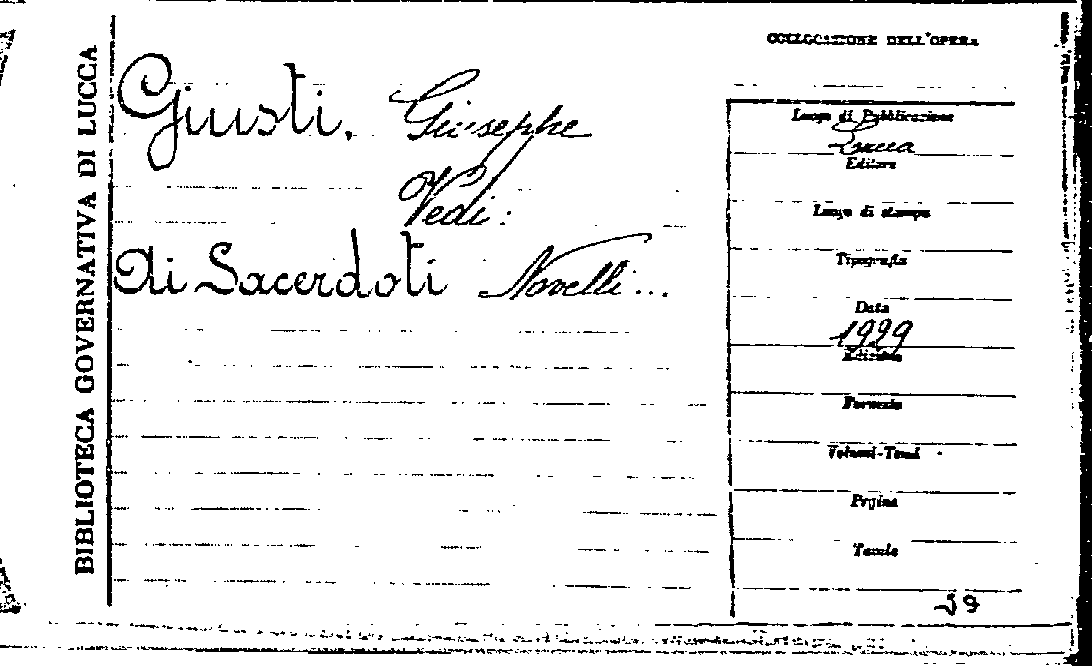 BIBLIOTECA GOVERNATIVA DI LUCCA
Giusti, Giuseppe
Vedi:
Ai Sacerdoti Novelli...
COLLOCAZIONE DELL'OPERA
Luogo di Pubblicazione
Lucca
Editore
Luogo di stampa
Tipografia
Data
1929
Edizione
Formato
Volumi-Tomi
Pagine
Tavole